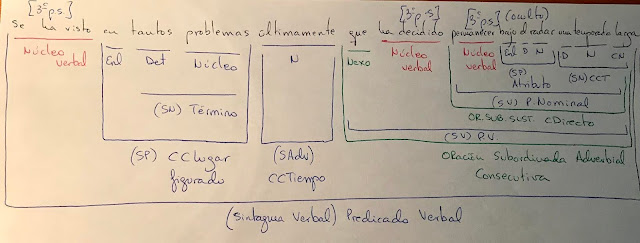 [3ª p.s.] [3ª p.s] [3ª p.s] (oculto)
Se ha visto en tantos problemas últimamente que ha decidido permanecer bajo el radar una temporada larga
Núcleo verbal Enl Det Núcleo N Nexo Núcleo verbal Núcleo verbal Enl D N D N CN
(SP) Atributo (SN) CCT
(SN) Término (SV) P. Nominal
OR. SUB. SUST. CDirecto
(SV) P.V.
(SP) CCLugar figurado (SAdv) CCTiempo Oración Subordinada Adverbial Consecutiva
(Sintagma Verbal) Predicado Verbal